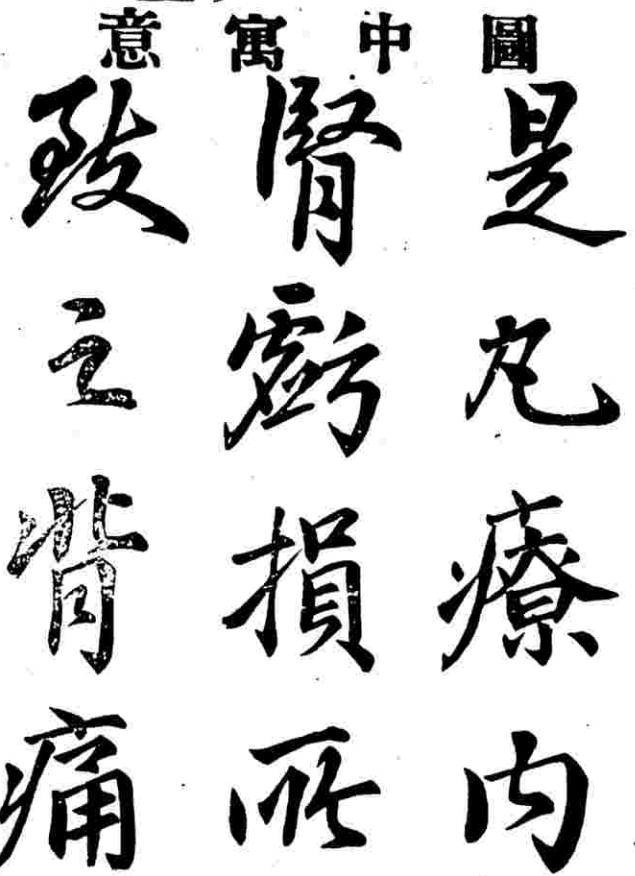 圖中寓意
是丸療內
腎虧損所
致之背痛